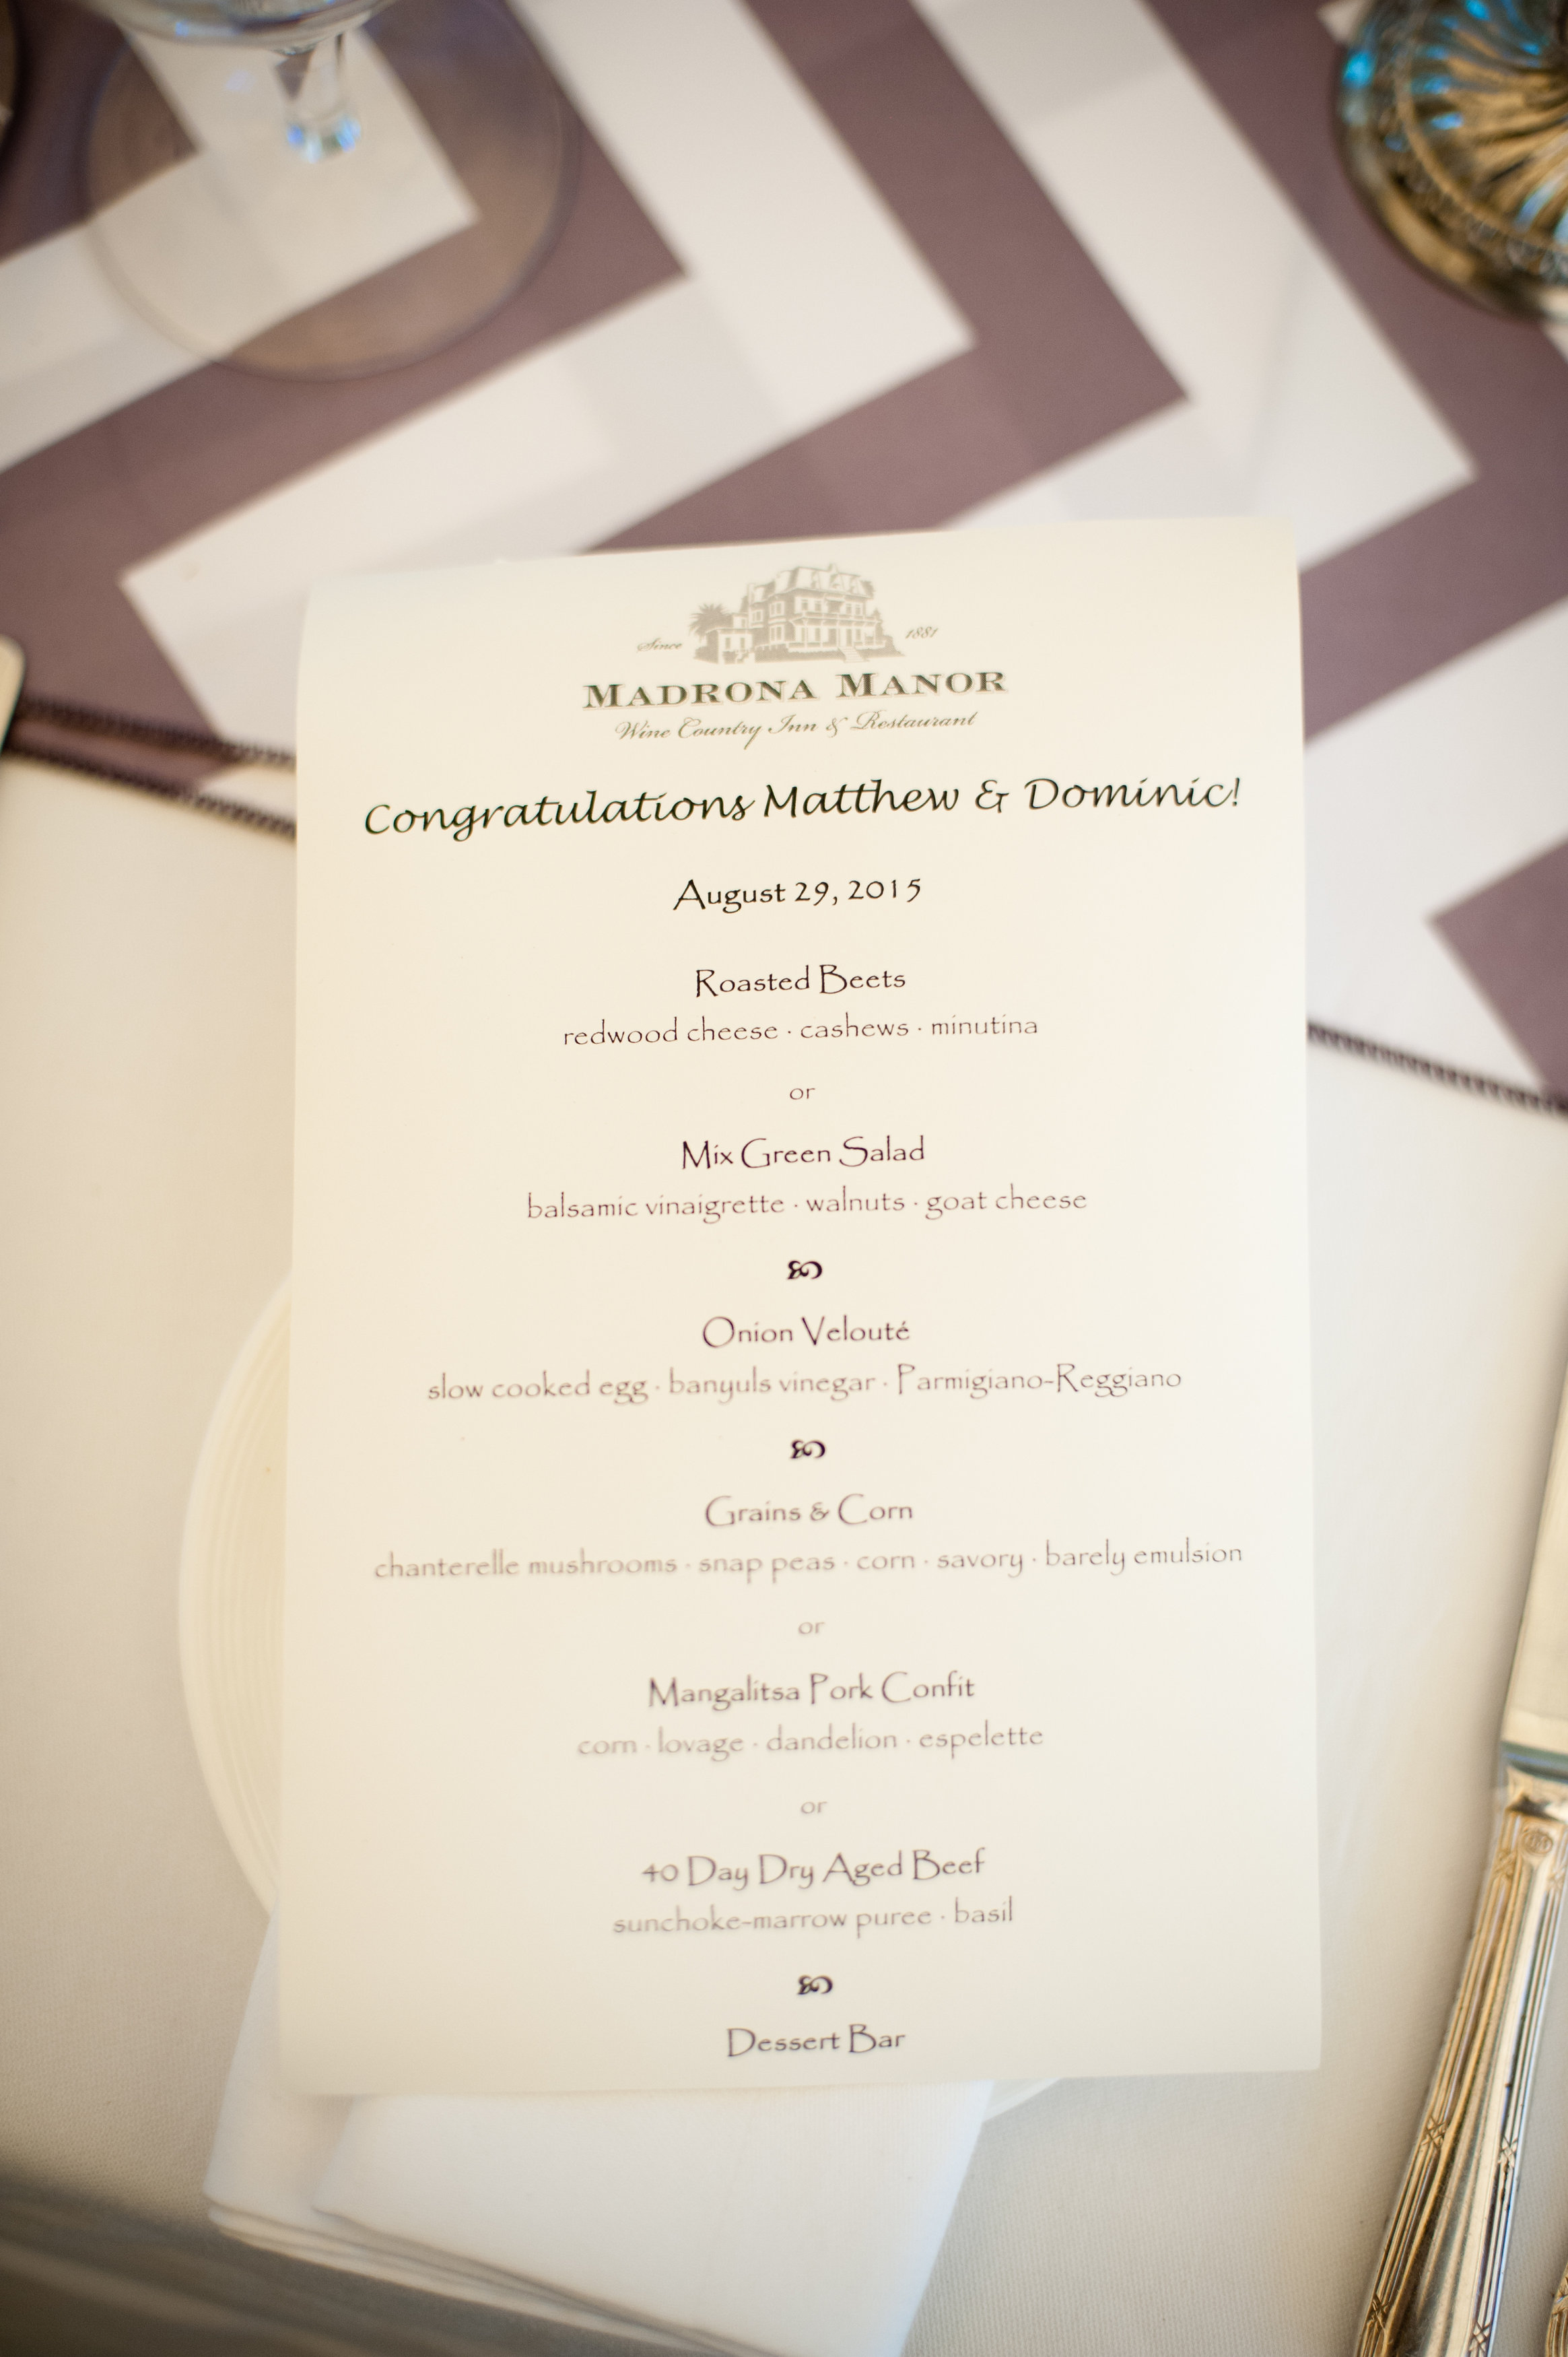 Since 1881
MADRONA MANOR
Wine Country Inn & Restaurant
Congratulations Matthew & Dominic!
August 29, 2015
Roasted Beets
redwood cheese · cashews · minutina
or
Mix Green Salad
balsamic vinaigrette · walnuts · goat cheese
Onion Velouté
slow cooked egg · banyuls vinegar · Parmigiano-Reggiano
Grains & Corn
chanterelle mushrooms · snap peas · corn · savory · barely emulsion
or
Mangalitsa Pork Confit
corn · lovage · dandelion · espelette
or
40 Day Dry Aged Beef
sunchoke-marrow puree · basil
Dessert Bar